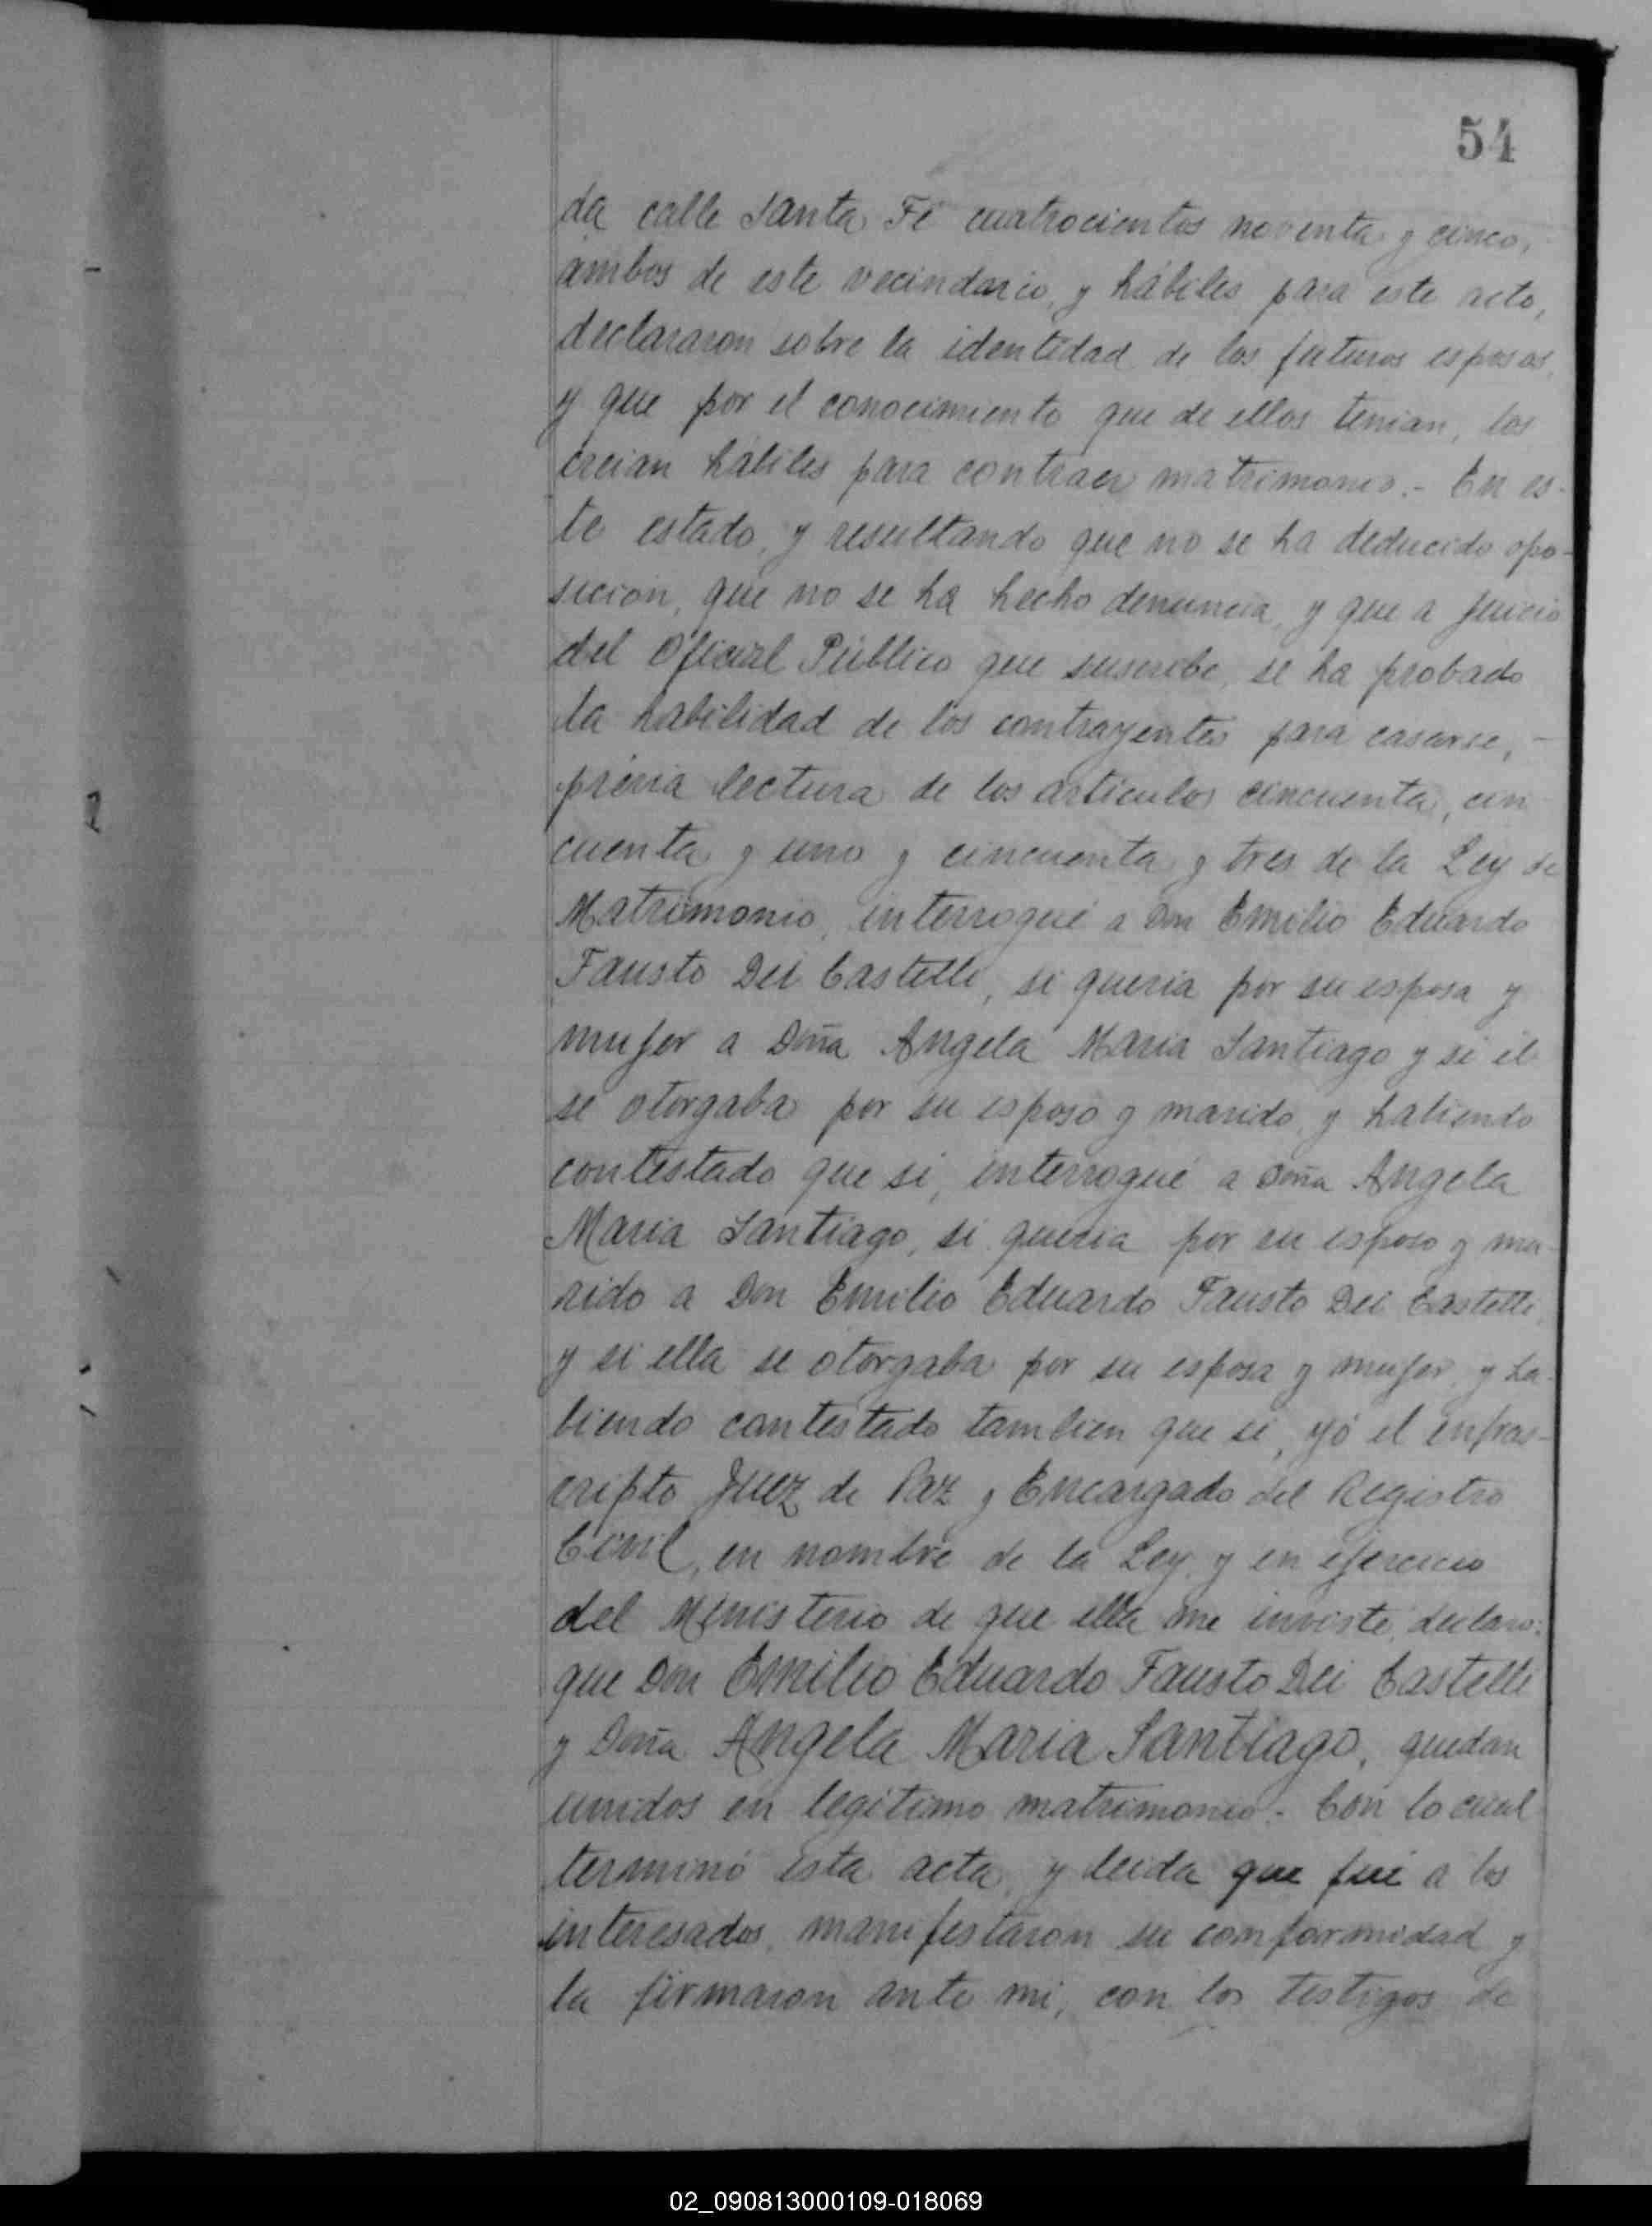 54
da calle Santa Fé cuatrocientos noventa y cinco,
ambos de este vecindario, y hábiles para este acto,
declararon sobre la identidad de los futuros esposos,
y que por el conocimiento que de ellos tenian, los
creian hábiles para contraer matrimonio.- En es-
te estado, y resultando que no se ha deducido opo-
sicion, que no se ha hecho denuncia, y que a juicio
del Oficial Público que suscribe, se ha probado
la habilidad de los contrayentes para casarse,-
prévia lectura de los artículos cincuenta, cin
cuenta y uno y cincuenta y tres de la Ley de
Matrimonio, interrogué a Don Emilio Eduardo
Fausto Dei Castelli, si queria por su esposa y
mujer a Doña Angela Maria Santiago y si él
se otorgaba por su esposo y marido, y habiendo
contestado que si, interrogué a Doña Angela
Maria Santiago, si queria por su esposo y ma-
rido a Don Emilio Eduardo Fausto Dei Castelli,
y si ella se otorgaba por su esposa y mujer, y ha-
biendo contestado tambien que si, yó el infras-
cripto Juez de Paz y Encargado del Registro
Civil, en nombre de la Ley, y en ejercicio
del Ministerio de que ella me inviste, declaro:
que Don Emilio Eduardo Fausto Dei Castelli
y Doña Angela Maria Santiago, quedan
unidos en legítimo matrimonio.- Con lo cual
terminó esta acta, y leida que fué a los
interesados, manifestaron su conformidad y
la firmaron ante mi, con los testigos de
02_090813000109-018069